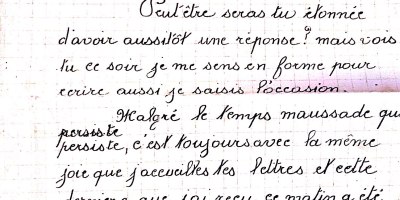 Peut être seras tu étonnée
d'avoir aussitôt une réponse? mais vois
tu ce soir je me sens en forme pour
écrire aussi je saisis l'occasion.
Malgré le temps maussade qui
persiste
persiste, c'est toujours avec la même
joie que j'accueilles tes lettres et cette
dernière que j'ai reçu ce matin a été